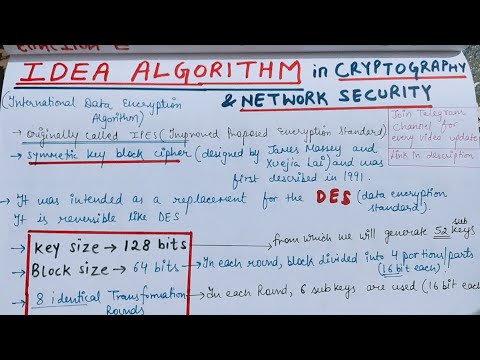 IDEA ALGORITHM in CRYPTOGRAPHY
& NETWORK SECURITY
(International Data Encryption
Algorithm)
Join Telegram
Channel for
every video update
Link in description
→ originally called IPES (Improved Proposed Encryption Standard)
→ symmetric key block cipher (designed by James Massey and
Xuejia Lai) and was
first described in 1991.
→ It was intended as a replacement for the DES (data encryption
standard).
It is reversible like DES
→ Key size → 128 bits → from which we will generate 52 sub keys
→ Block size → 64 bits → In each round, block divided into 4 portions/parts
(16 bit each)
→ 8 identical Transformation → In each Round, 6 subkeys are used (16 bit each
Rounds